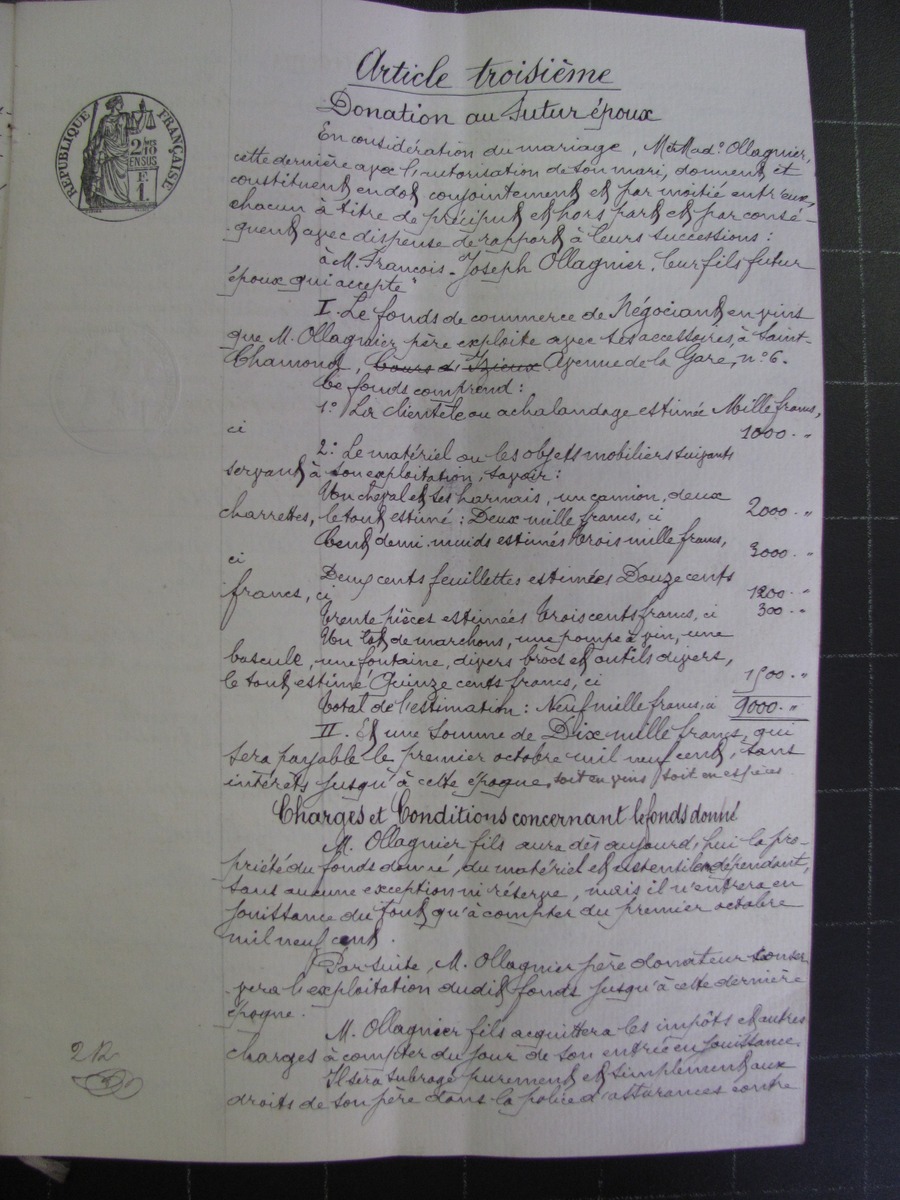 Article troisième
Donation au futur époux
RÉPUBLIQUE FRANÇAISE
2/10
EN SUS
F.
1
En considération du mariage, M. et Mad.e Ollagnier,
cette dernière avec l'autorisation de son mari, donnent et
constituent en dot conjointement et par moitié entr'eux,
chacun à titre de préciput et hors part et par consé-
quent avec dispense de rapport à leurs successions :
à M. Francois-Joseph Ollagnier, leur fils futur
époux qui accepte
I. Le fonds de commerce de Négociant en vins
que M. Ollagnier père exploite avec ses accessoires, à Saint-
Chamond, Cours d'Izieux Avenue de la Gare, n°6.
Ce fonds comprend :
1° La clientèle ou achalandage estimée Mille francs,
ci 1000 . "
2° Le matériel ou les objets mobiliers suivants
servant à son exploitation, savoir :
Un cheval et ses harnais, un camion, deux
charrettes, le tout estimé : Deux mille francs, ci 2000 . "
Cent demi-muids estimés trois mille francs,
ci 3000 . "
Deux cents feuillettes estimées Douze cents
francs, ci 1200 . "
Trente pièces estimées trois cents francs, ci 300 . "
Un lot de marchons, une pompe à vin, une
bascule, une fontaine, divers brocs et outils divers,
le tout estimé Quinze cents francs, ci 1500 . "
Total de l'estimation : Neuf mille francs, ci 9000 . "
II. Et une somme de Dix mille francs, qui
sera payable le premier octobre mil neuf cent, sans
intérêts jusqu'à cette époque, soit en vins soit en espèces
Charges et Conditions concernant le fonds donné
M. Ollagnier fils aura dès aujourd'hui la pro-
priété du fonds donné, du matériel et en dépendant,
sans aucune exception ni réserve, mais il n'entrera en
jouissance du tout qu'à compter du premier octobre
mil neuf cent.
Par suite, M. Ollagnier père donateur conser
vera l'exploitation dudit fonds jusqu'à cette dernière
époque.
M. Ollagnier fils acquittera les impôts et autres
charges à compter du jour de son entrée en jouissance.
Il sera subrogé purement et simplement aux
droits de son père dans la police d'assurances contre